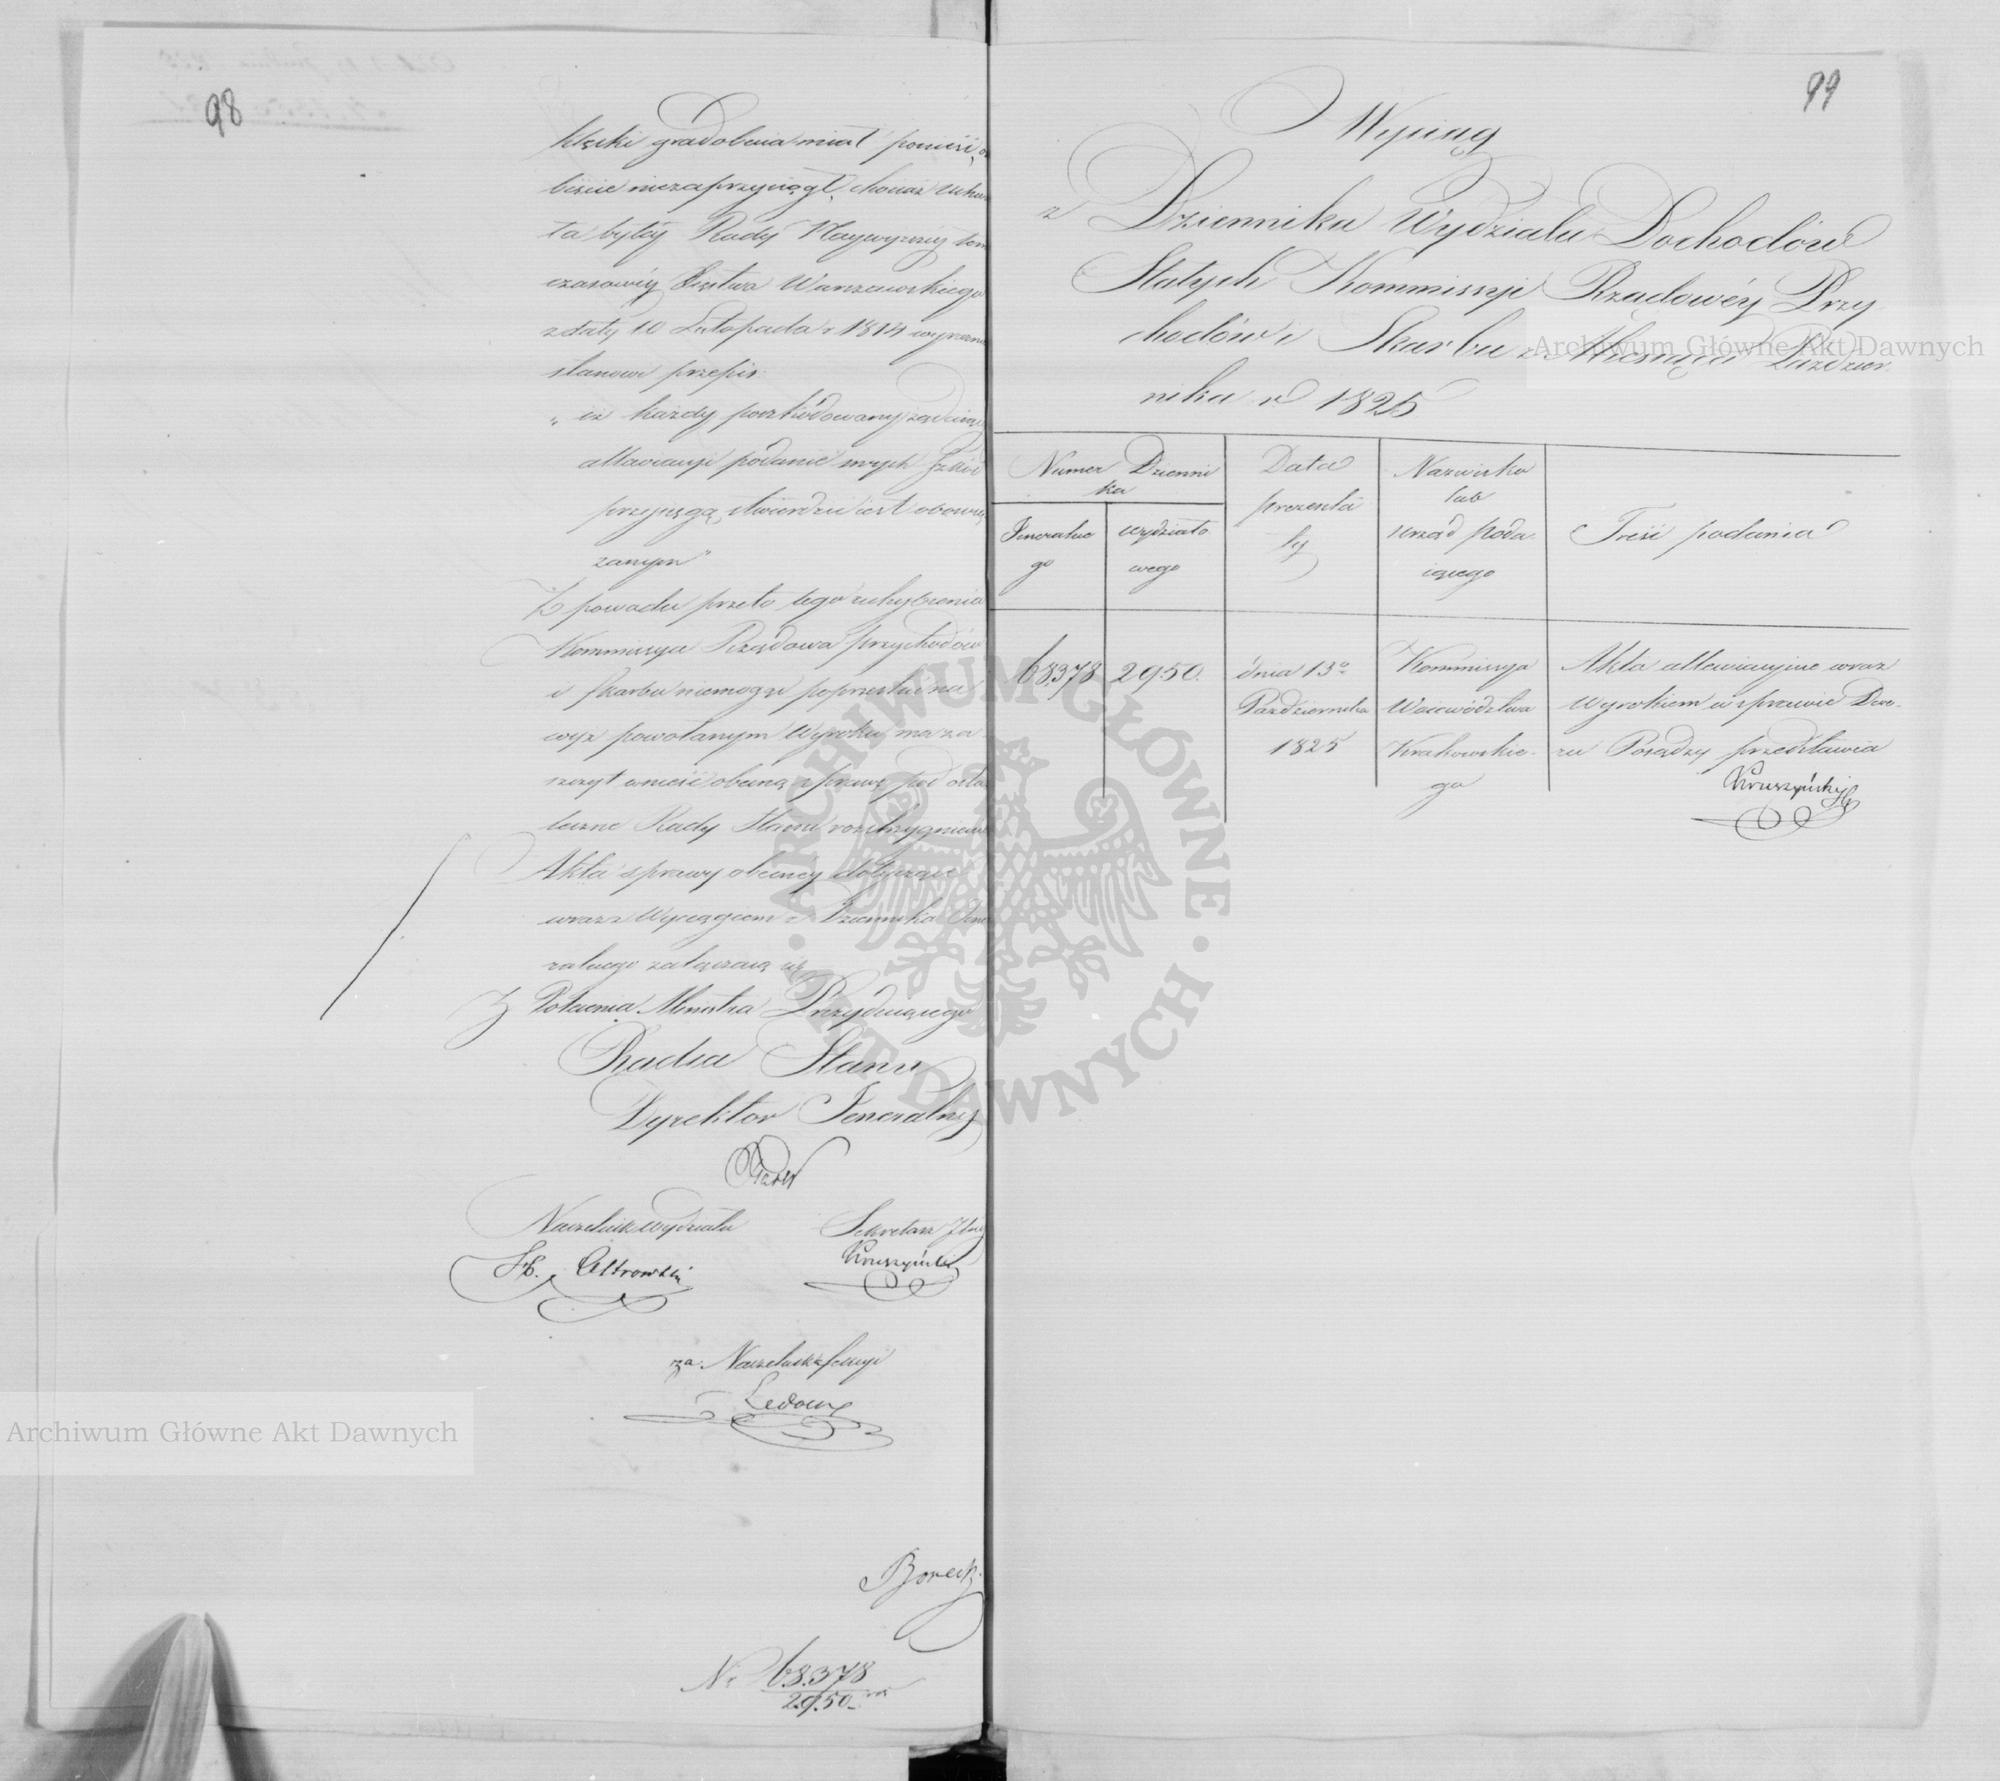 98
klęski gradobicia miał ponieść, o
biście niezaprzysiągł, chociaż uchwa
ła byłéy Rady Naywyższéy tym
czasowéy Xięstwa Warszawskiego
z daty 10 Listopada r 1814 wyraźnie
stanowi przepis:
„iż każdy poszkodowany żądaiąc
allewiacyi podanie swych szkód
przysięgą stwierdzić iest obowią
zanym"
Z powodu przeto tego uchybienia
Kommissya Rządowa Przychodów
i Skarbu niemogąc poprzestać na
wyż powołanym Wyroku, ma za
szczyt wnieść obecną sprawę pod osta
teczne Rady Stanu rozstrzygnienie
Akta sprawy obecnéy dotyczące
wraz z Wyciągiem z Dziennika Jene
ralnego załączaią się
Z Polecenia Ministra Prezyduiącego
Radca Stanu
Dyrektor Jeneralny
Naczelnik Wydziału Sekretarz Jlny
Kruszyński
za Naczelnika Sekcyi
N. 68378
2950
99
Wyciąg
z Dziennika Wydziału Dochodów
Stałych Kommissyi Rządowéy Przy
chodów i Skarbu z Miesiąca Paździer
nika r 1825
Numer Dzienni
ka
Jeneralne
go
wydziało
wego
Data
prezenta
ty
Nazwisko
lub
urząd poda
iącego
Treść podania
68378 2950. dnia 13º Października 1825
Kommissya
Woiewództwa
Krakowskie
go
Akta allewiacyine wraz
Wyrokiem w sprawie Dwo
ru Posądzy przedstawia
Kruszyński
Archiwum Główne Akt Dawnych
Archiwum Główne Akt Dawnych
ARCHIWUM GŁÓWNE AKT DAWNYCH